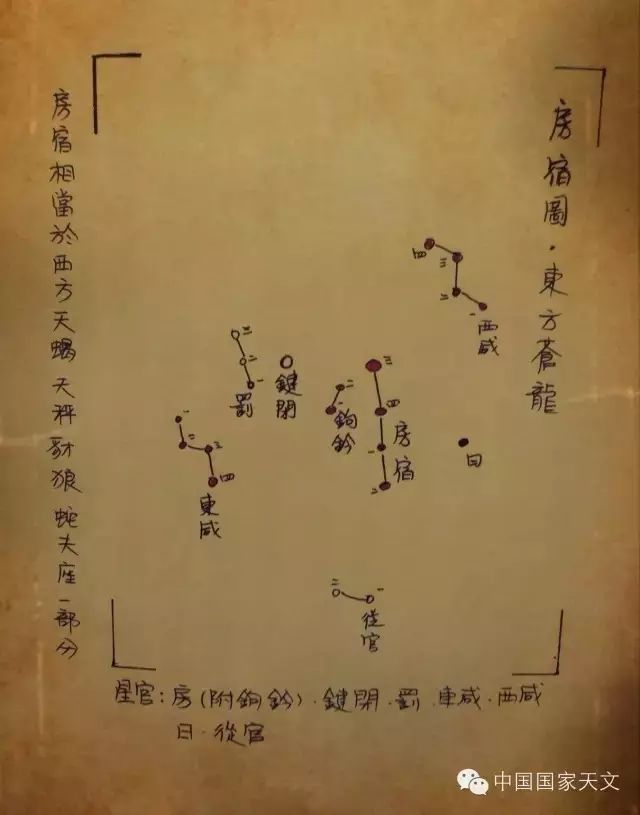 房宿圖·東方蒼龍
四
三
二
一
西咸
三
二
一
罰
鍵閉
二
一
鉤鈐
三
四
一
二
房宿
日
一
二
三
四
東咸
二
一
從官
房宿相當於西方天蝎 天秤 豺狼 蛇夫座一部分
星官:房(附鉤鈐)·鍵閉·罰·東咸·西咸
日·從官
中国国家天文